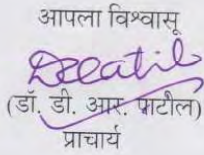 आपला विश्वासू
(डॉ. डी. आर. पाटील)
प्राचार्य